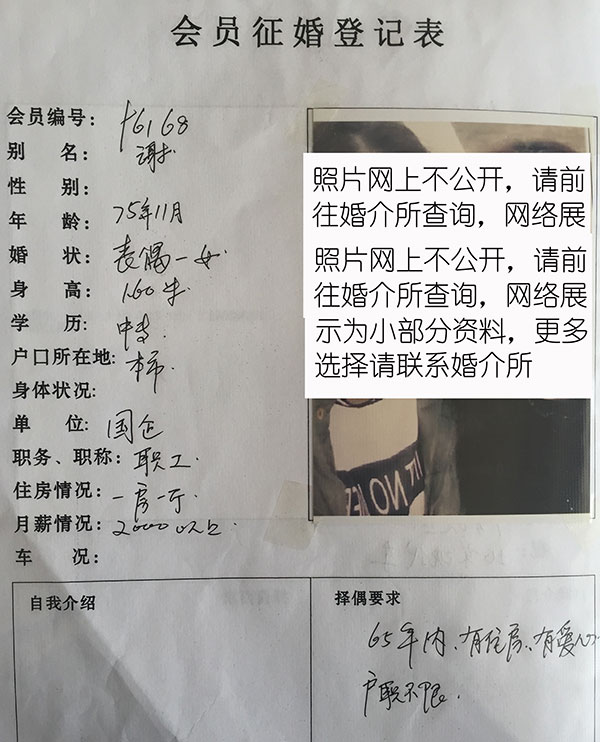 会员征婚登记表
会员编号: f6168
别 名: 谢女
性 别:
年 龄: 75年11月
婚 状: 丧偶一女
身 高: 1.60米
学 历: 中专.
户口所在地: 本市.
身体状况:
单 位: 国企
职务、职称: 职工
住房情况: 一房一厅
月薪情况: 2000以上.
车 况:
照片网上不公开，请前
往婚介所查询，网络展
照片网上不公开，请前
往婚介所查询，网络展
示为小部分资料，更多
选择请联系婚介所
自我介绍
择偶要求
65年内、有住房、有爱心
户职不限.